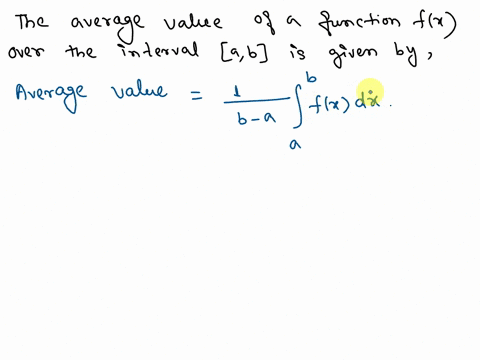 The average value of a function f(x)
over the interval [a,b] is given by,
Average value = 1/(b-a) ∫_a^b f(x) dx.